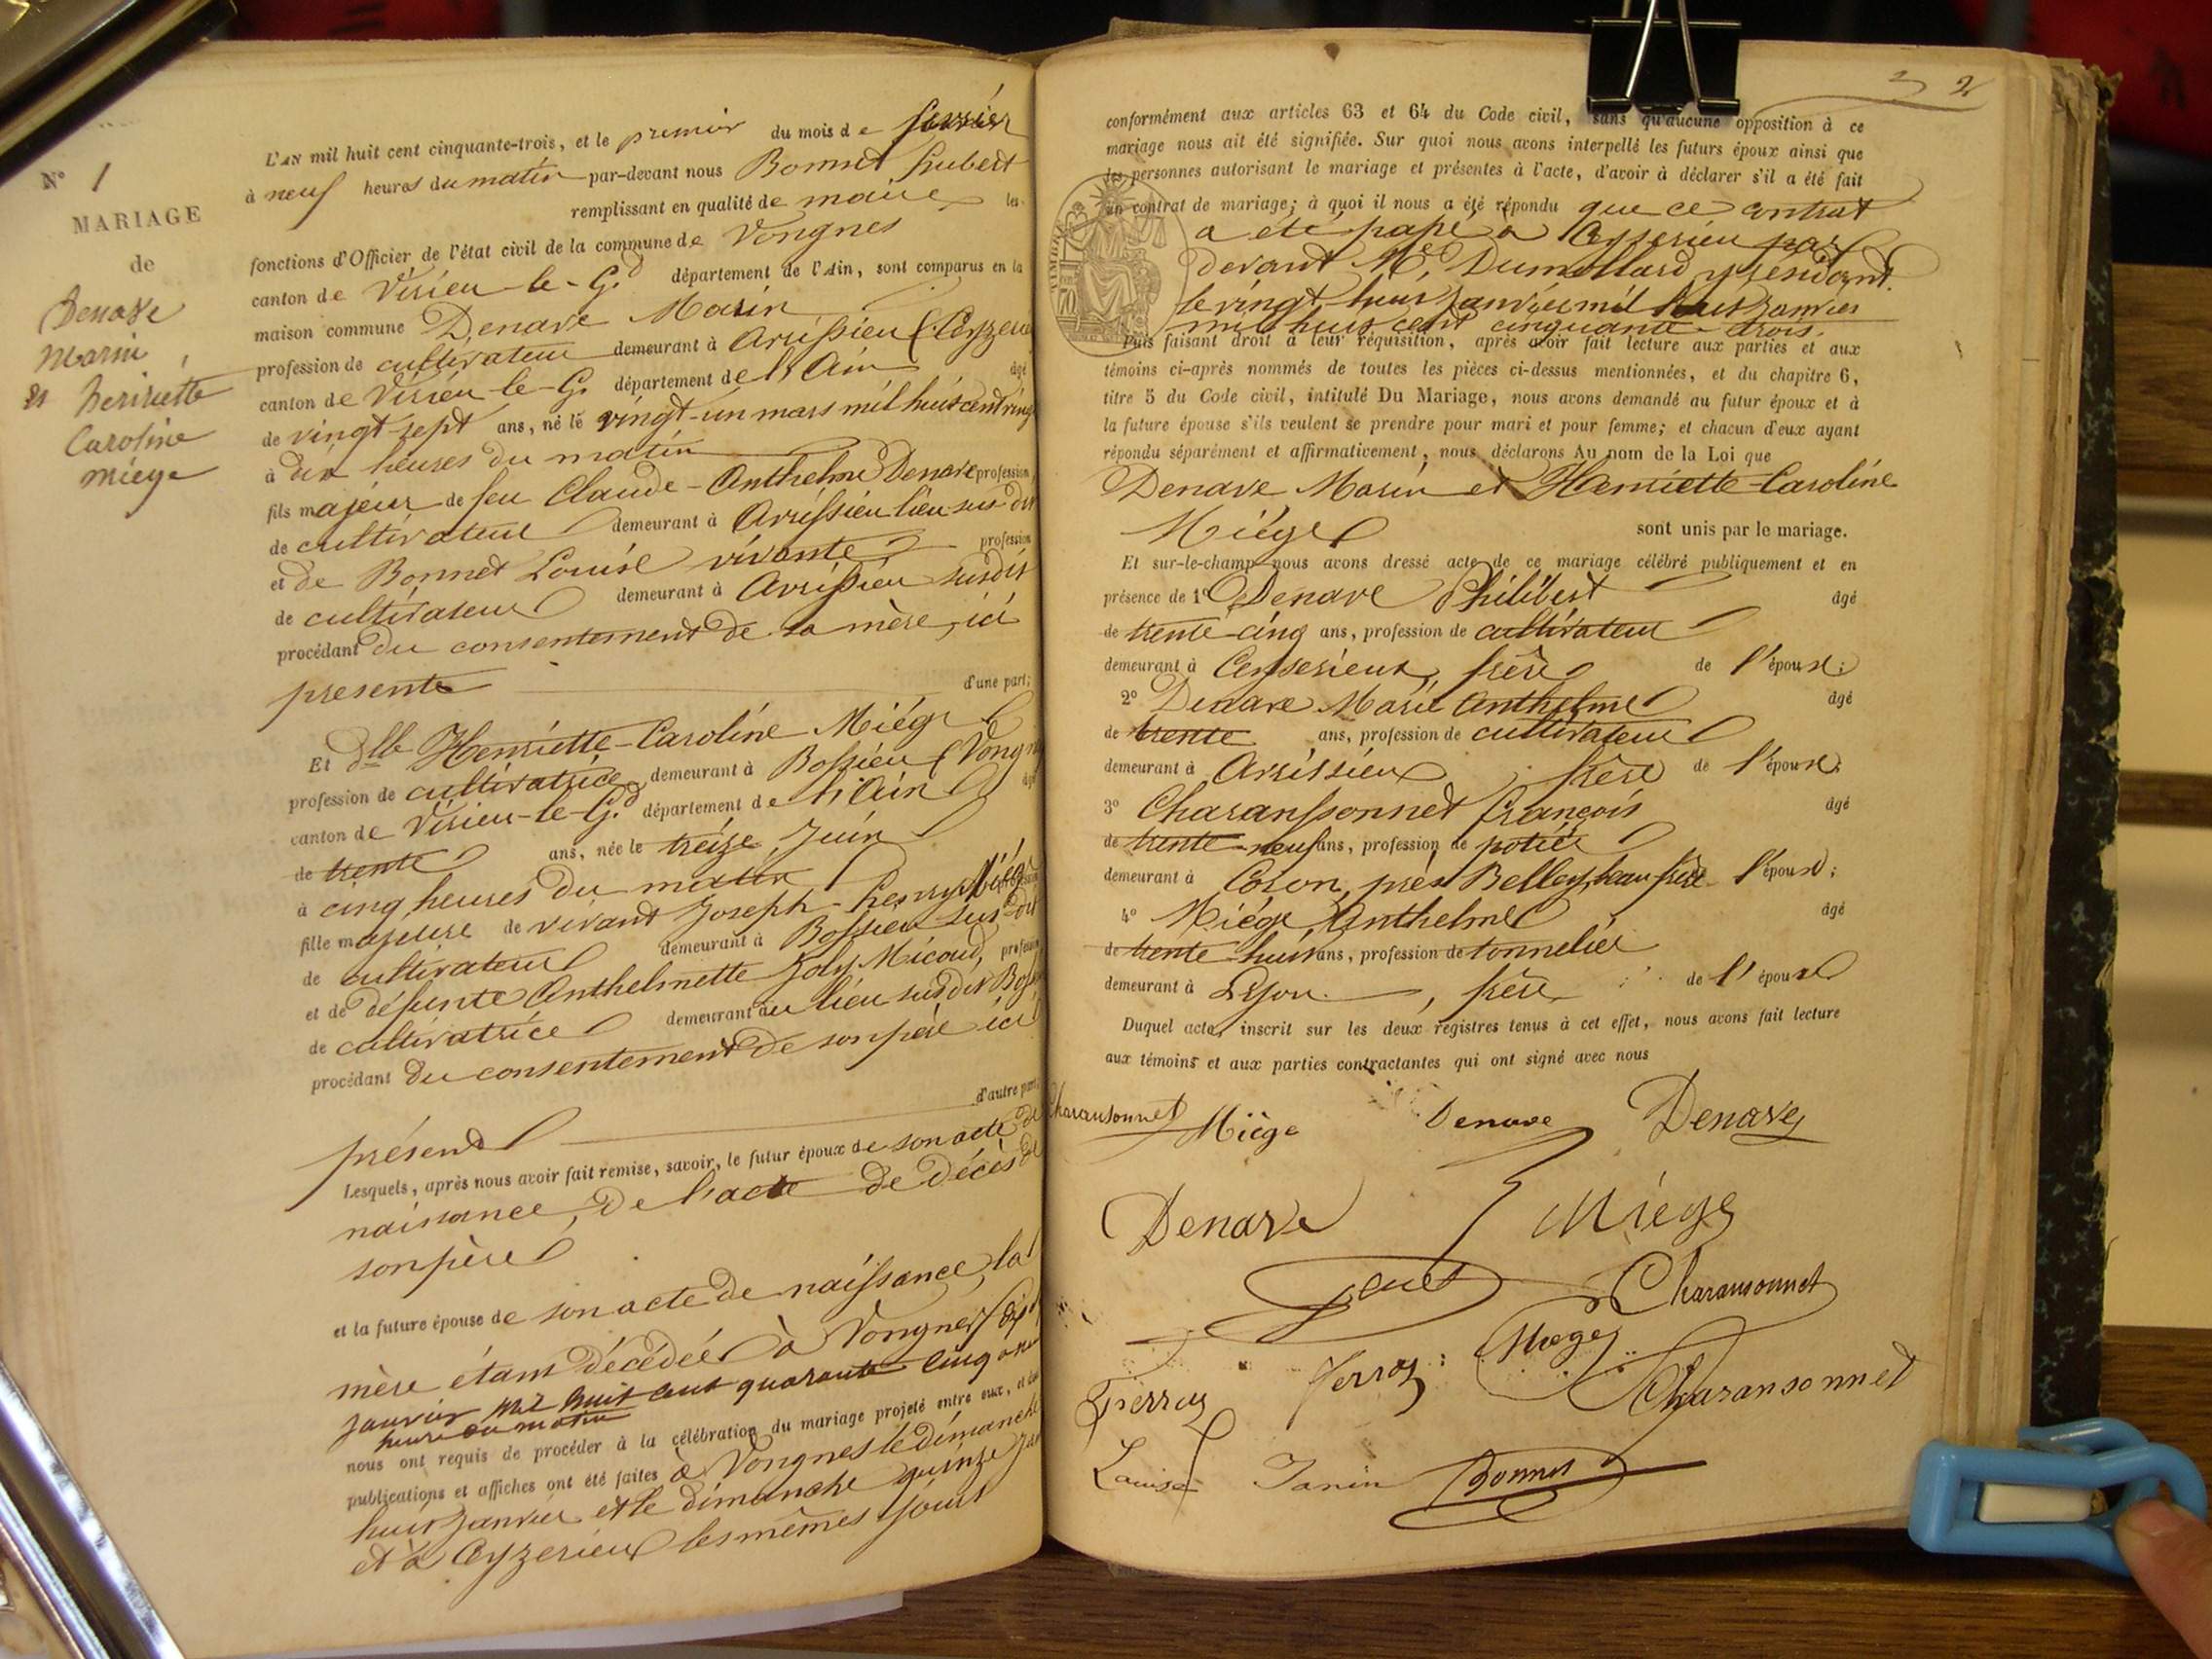 N° 1
MARIAGE
de
Denave
Marin
et henriette
Caroline
Miège
L'AN mil huit cent cinquante-trois, et le premier du mois de février
à neuf heures du matin par-devant nous Bonnet hubert
remplissant en qualité de maire les
fonctions d'Officier de l'état civil de la commune de Vongnes
canton de Virieu-le-Gd département de l'Ain, sont comparus en la
maison commune Denave Marin
profession de cultivateur demeurant à Avrissieu (Ceyzerieu
canton de Virieu-le-Gd département de l'Ain âgé
de vingt-sept ans, né le vingt-un mars mil huit cent vingt
à dix heures du matin
fils majeur de feu Claude-Anthelme Denave profession
de cultivateur demeurant à Avrissieu lieu sus dit
et de Bonnet Louise vivante profession
de cultivateur demeurant à Avrissieu susdit
procédant du consentement de sa mère, ici
présente d'une part;
Et dlle Henriette-Caroline Miège
profession de cultivatrice demeurant à Bossieu (Vongnes
canton de Virieu-le-Gd département de l'Ain
de trente ans, née le treize Juin
à cinq heures du matin
fille majeure de vivant Joseph-henry Miège
de cultivateur demeurant à Bossieu sus-dit
et de défunte Anthelmette Joly Micoud, profession
de cultivatrice demeurant au lieu susdit
procédant du consentement de son père ici
d'autre part;
présent
Lesquels, après nous avoir fait remise, savoir, le futur époux de son acte de
naissance, de l'acte de décès de
son père
et la future épouse de son acte de naissance, la
mère étant décédée à Vongnes
janvier mil huit cent quarante cinq
heure du matin
nous ont requis de procéder à la célébration du mariage projeté entre eux,
publications et affiches ont été faites à Vongnes le dimanche
huit janvier et le dimanche quinze
et à Ceyzerieu les mêmes jours
2
conformément aux articles 63 et 64 du Code civil, sans qu'aucune opposition à ce
mariage nous ait été signifiée. Sur quoi nous avons interpellé les futurs époux ainsi que
les personnes autorisant le mariage et présentes à l'acte, d'avoir à déclarer s'il a été fait
un contrat de mariage; à quoi il nous a été répondu que ce contrat
a été passé à Ceyzerieu par
devant Me Dumollard y résidant
le vingt huit janvier mil huit janvier
mil huit cent cinquante-trois.
Puis faisant droit à leur réquisition, après avoir fait lecture aux parties et aux
témoins ci-après nommés de toutes les pièces ci-dessus mentionnées, et du chapitre 6,
titre 5 du Code civil, intitulé Du Mariage, nous avons demandé au futur époux et à
la future épouse s'ils veulent se prendre pour mari et pour femme; et chacun d'eux ayant
répondu séparément et affirmativement, nous déclarons Au nom de la Loi que
Denave Marin et Henriette-Caroline
Miège sont unis par le mariage.
Et sur-le-champ nous avons dressé acte de ce mariage célébré publiquement et en
présence de 1° Denave Philibert âgé
de trente-cinq ans, profession de cultivateur
demeurant à Ceyserieux, frère de l'époux;
2° Denave Marie Anthelme âgé
de trente ans, profession de cultivateur
demeurant à Avrissieu, frère de l'époux;
3° Charansonnet françois âgé
de trente-neuf ans, profession de potier
demeurant à Coron, près Belley, beau frère l'époux;
4° Miège Anthelme âgé
de trente-huit ans, profession de tonnelier
demeurant à Lyon, frère de l'épouse
Duquel acte, inscrit sur les deux registres tenus à cet effet, nous avons fait lecture
aux témoins et aux parties contractantes qui ont signé avec nous
Charansonnet Miège Denave Denave
Denave Miège
Charansonnet
Pierrey Miège
Charansonnet
Louise Janin Bonnet